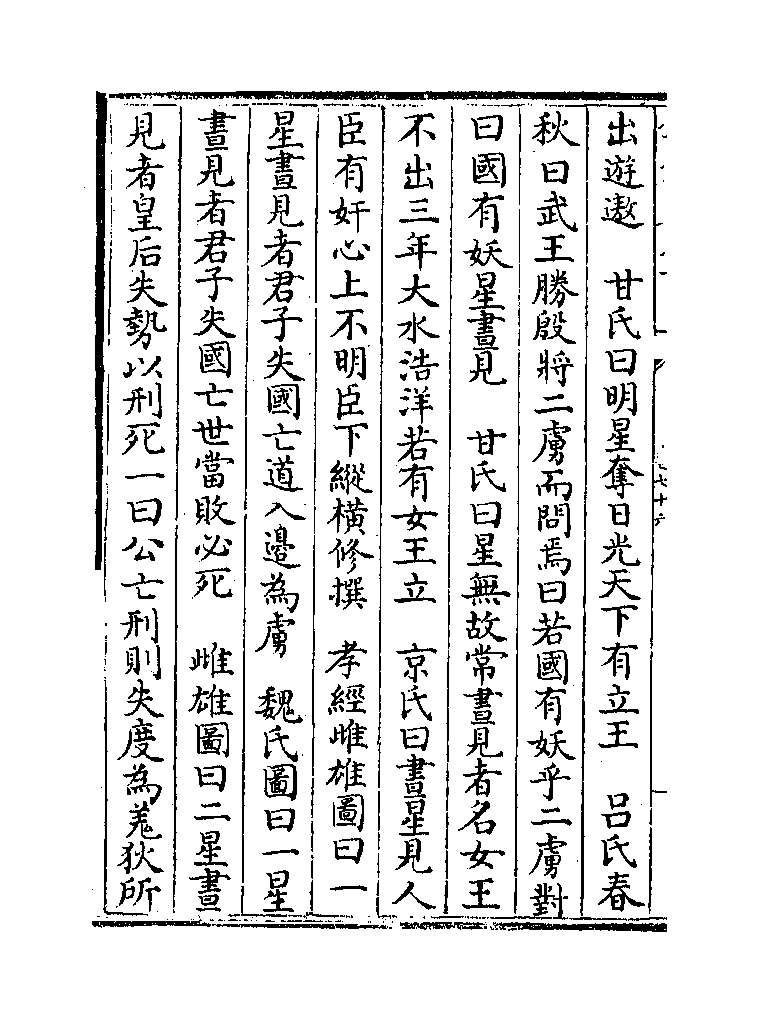 出遊遨　甘氏曰明星奪日光天下有立王　吕氏春
秋曰武王勝殷將二虜而問焉曰若國有妖乎二虜對
曰國有妖星晝見　甘氏曰星無故常晝見者名女王
不出三年大水浩洋若有女王立　京氏曰晝星見人
臣有奸心上不明臣下縱横修撰　孝經雌雄圖曰一
星晝見者君子失國亡道入邊為虜　魏氏圖曰一星
晝見者君子失國亡世當敗必死　雌雄圖曰二星晝
見者皇后失勢以刑死一曰公亡刑則失度為羌狄所